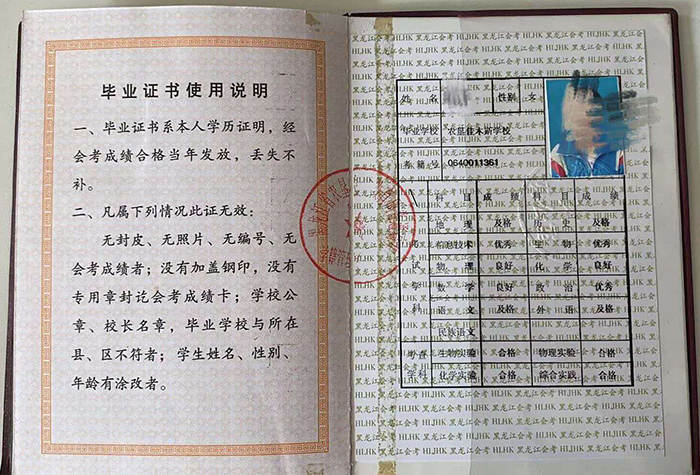 毕业证书使用说明
一、毕业证书系本人学历证明，经
会考成绩合格当年发放，丢失不
补。
二、凡属下列情况此证无效：
无封皮、无照片、无编号、无
会考成绩者；没有加盖钢印，没有
专用章封讫会考成绩卡；学校公
章、校长名章，毕业学校与所在
县、区不符者；学生姓名、性别、
年龄有涂改者。
黑龙江会考 HLJHK 黑龙江会考 HLJHK 黑龙江会考
姓 名 性别 女
毕业学校 农垦佳木斯学校
考籍号 0640011361
科 目 成 绩 科 目 成 绩
地 理 及格 历 史 及格
信息技术 优秀 生 物 优秀
物 理 良好 化 学 良好
数 学 良好 政 治 优秀
语 文 及格 外 语 及格
民族语文
考查 生物实验 合格 物理实验 合格
学科 化学实验 合格 综合实践 合格